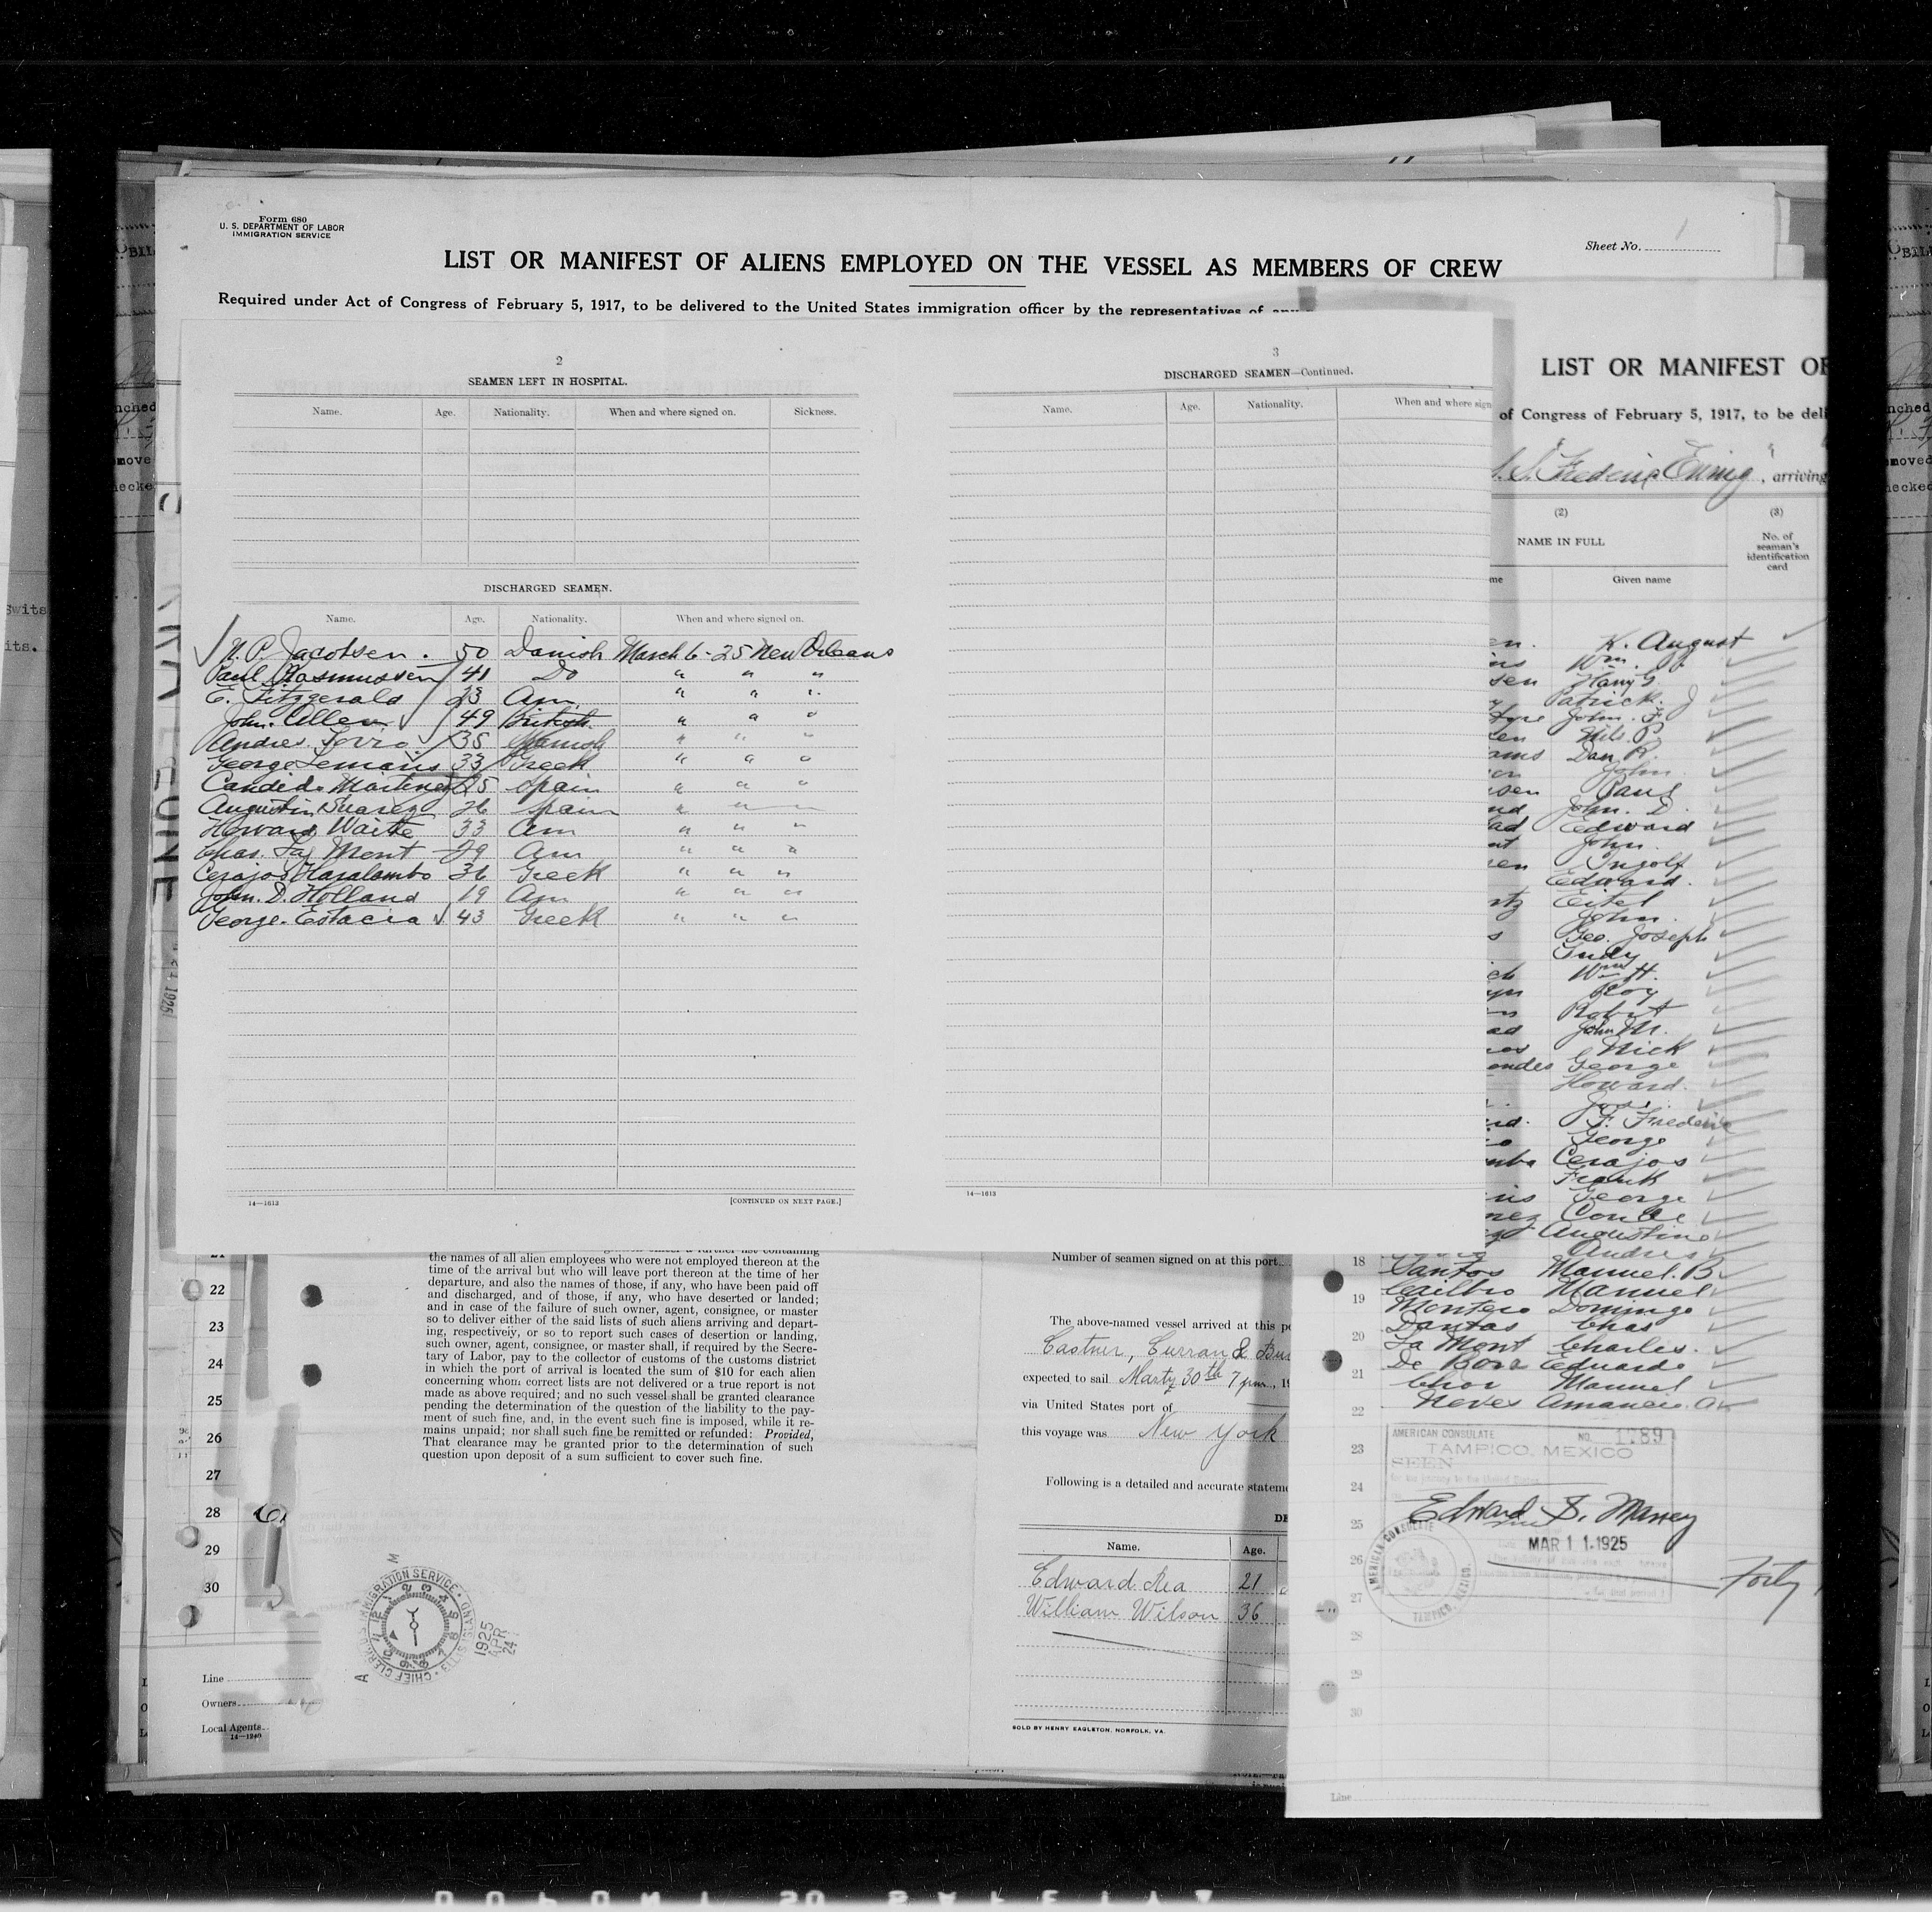 Form 680
U. S. DEPARTMENT OF LABOR
IMMIGRATION SERVICE
Sheet No. 1
LIST OR MANIFEST OF ALIENS EMPLOYED ON THE VESSEL AS MEMBERS OF CREW
Required under Act of Congress of February 5, 1917, to be delivered to the United States immigration officer by the representatives of any
2
SEAMEN LEFT IN HOSPITAL.
Name. Age. Nationality. When and where signed on. Sickness.
DISCHARGED SEAMEN.
Name. Age. Nationality. When and where signed on.
N. P. Jacobsen. 50 Danish March 6-25 New Orleans
Paul Rasmussen 41 Do " " "
E. Fitzgerald 23 Am " " "
John Allen 49 British " " "
Andres 35 Spanish " " "
George Lemanis 33 Greek " " "
Candido Martinez 25 Spain " " "
Augustin Suarez 26 Spain " " "
Howard Waite 33 Am " " "
Chas. La Mont 29 Am " " "
Cerajos Haralambo 36 Greek " " "
John D. Holland 19 Am " " "
George Estacia 43 Greek " " "
14—1613
[CONTINUED ON NEXT PAGE.]
3
DISCHARGED SEAMEN—Continued.
Name. Age. Nationality. When and where sign
14—1613
LIST OR MANIFEST OF
of Congress of February 5, 1917, to be deli
S. S. Frederic Ewing, arriving
(2) (3)
NAME IN FULL
No. of
seaman's
identification
card
me Given name
en. K. August
ins Wm.
sen Harry G.
y Patrick J
tyre John. F.
sen Nils. P.
ams Dan R.
on John
sen Paul
nd John. D.
ad Edward
nt John.
sen Ingolf
Edward.
rtz Eitel
John.
s Geo. Joseph
Indy
ch Wm H.
yn Roy
ns Robert
ad John M.
os Nick
ondes George
Howard.
Jos.
rd. F. Frederic
o George
mbo Cerajos
Frank
nis George
nez
Augustino
Andres
18 Santos Manuel. B
19 Manuel
Montero Domingo
20 Dantas Chas
La Mont Charles.
21 De Bora Eduardo
Manuel
22 Neves
23
24
25
26
27
28
29
30
AMERICAN CONSULATE NO. 1789
TAMPICO, MEXICO
SEEN
for the journey to the United States
Edward S. Maney
MAR 11 1925
AMERICAN CONSULATE
TAMPICO, MEXICO.
Forty
Line
21
22
23
24
25
26
27
28
29
30
the names of all alien employees who were not employed thereon at the
time of the arrival but who will leave port thereon at the time of her
departure, and also the names of those, if any, who have been paid off
and discharged, and of those, if any, who have deserted or landed;
and in case of the failure of such owner, agent, consignee, or master
so to deliver either of the said lists of such aliens arriving and depart-
ing, respectively, or so to report such cases of desertion or landing,
such owner, agent, consignee, or master shall, if required by the Secre-
tary of Labor, pay to the collector of customs of the customs district
in which the port of arrival is located the sum of $10 for each alien
concerning whom correct lists are not delivered or a true report is not
made as above required; and no such vessel shall be granted clearance
pending the determination of the question of the liability to the pay-
ment of such fine, and, in the event such fine is imposed, while it re-
mains unpaid; nor shall such fine be remitted or refunded: Provided,
That clearance may be granted prior to the determination of such
question upon deposit of a sum sufficient to cover such fine.
IMMIGRATION SERVICE
CHIEF CLERK
ELLIS ISLAND
1925
APR
24
Line
Owners
Local Agents
14—1240
Number of seamen signed on at this port
The above-named vessel arrived at this po
Castner, Curran & Bul
expected to sail 30th 7 pm., 19
via United States port of
this voyage was New York
Following is a detailed and accurate stateme
DE
Name. Age.
Edward Rea 21
William Wilson 36
SOLD BY HENRY EAGLETON, NORFOLK, VA.